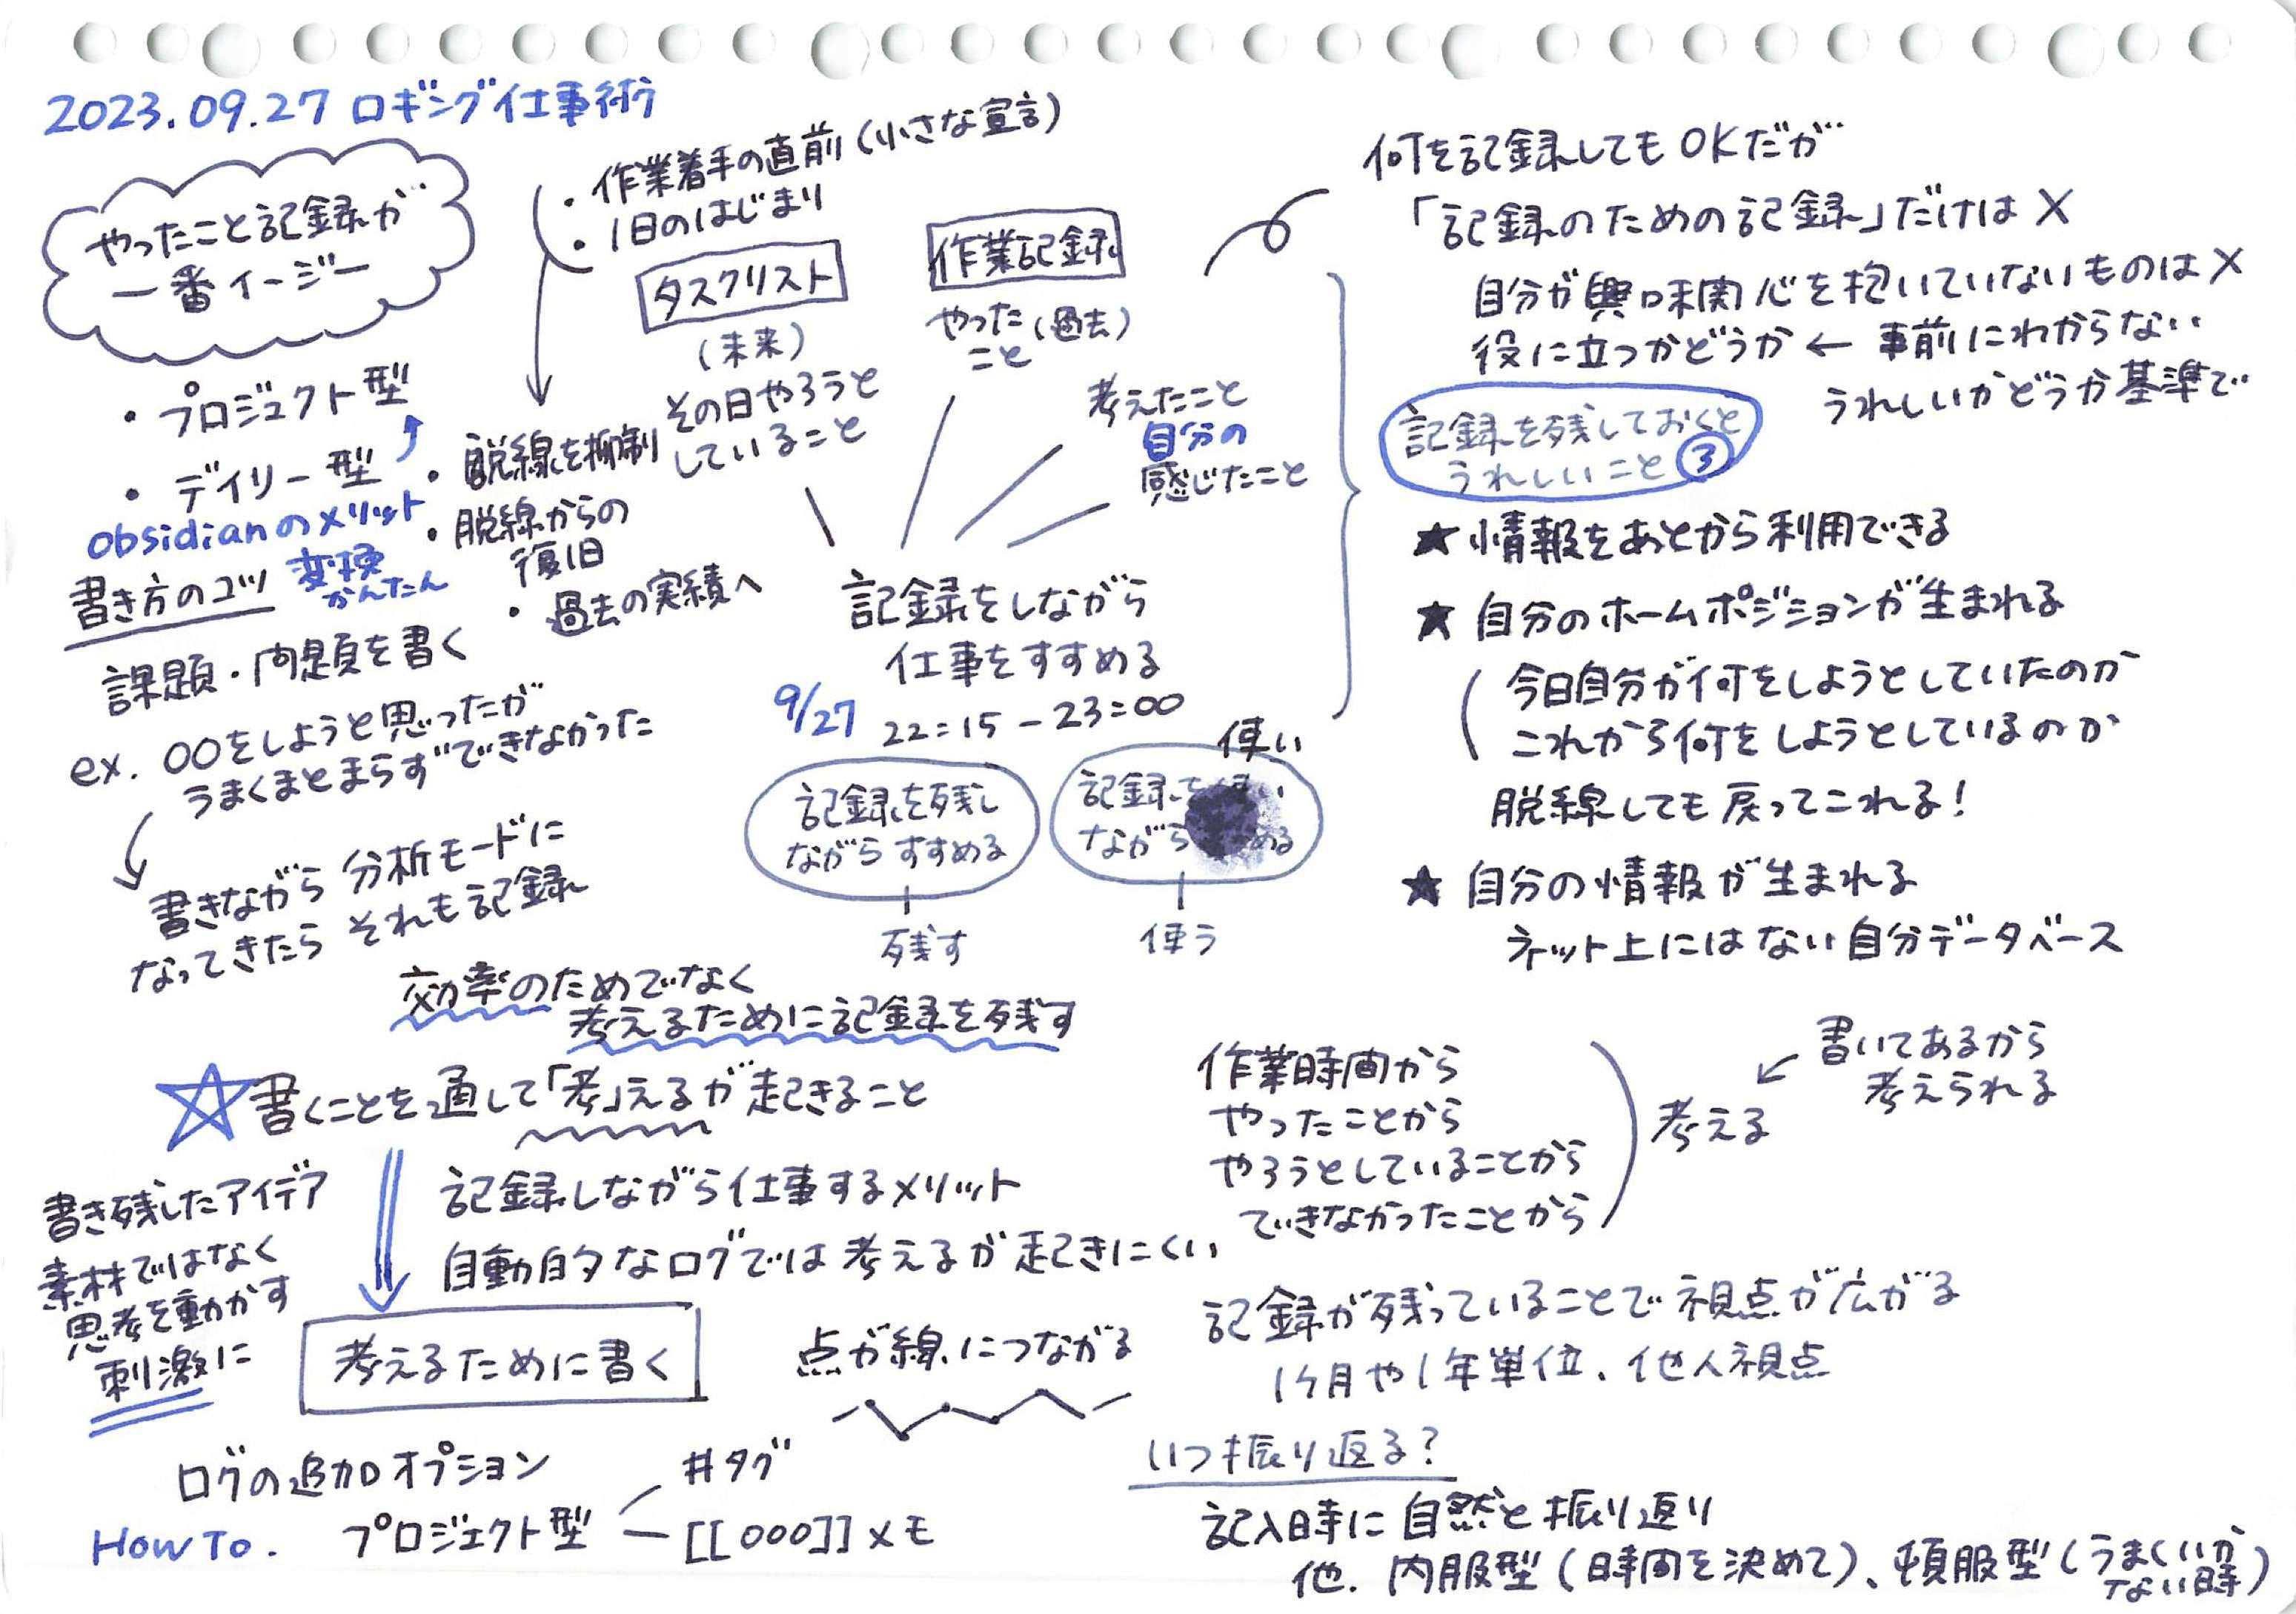 2023.09.27 ロギング仕事術
やったこと記録が
一番イージー
・プロジェクト型
・デイリー型
obsidianのメリット
変換
かんたん
・作業着手の直前(小さな宣言)
・1日のはじまり
タスクリスト
(未来)
その日やろうと
していること
・脱線を抑制
・脱線からの
復旧
・過去の実績へ
作業記録
やった(過去)
こと
考えたこと
自分の
感じたこと
記録をしながら
仕事をすすめる
9/27 22:15-23:00
記録を残し
ながらすすめる
残す
使い
記録を使い
ながら める
使う
書き方のコツ
課題・問題を書く
ex. ○○をしようと思ったが
うまくまとまらずできなかった
書きながら 分析モードに
なってきたら それも記録
効率のためでなく
考えるために記録を残す
☆書くことを通して「考」えるが起きること
記録しながら仕事するメリット
自動的なログでは考えるが起きにくい
書き残したアイデア
素材ではなく
思考を動かす
刺激に
考えるために書く
点が線につながる
ログの追加オプション
How To. プロジェクト型
#タグ
[[000]]メモ
何を記録してもOKだが
「記録のための記録」だけは×
自分が興味関心を抱いていないものは×
役に立つかどうか← 事前にわからない
うれしいかどうか基準で
記録を残しておくと
うれしいこと③
★情報をあとから利用できる
★自分のホームポジションが生まれる
(今日自分が何をしようとしていたのか
これから何をしようとしているのか
脱線しても戻ってこれる!
★自分の情報が生まれる
ネット上にはない自分データベース
作業時間から
やったことから
やろうとしていることから
できなかったことから
考える
←書いてあるから
考えられる
記録が残っていることで視点が広がる
1ヶ月や1年単位、他人視点
いつ振り返る?
記入時に自然と振り返り
他. 内服型(時間を決めて)、頓服型(うまくいか
ない時)